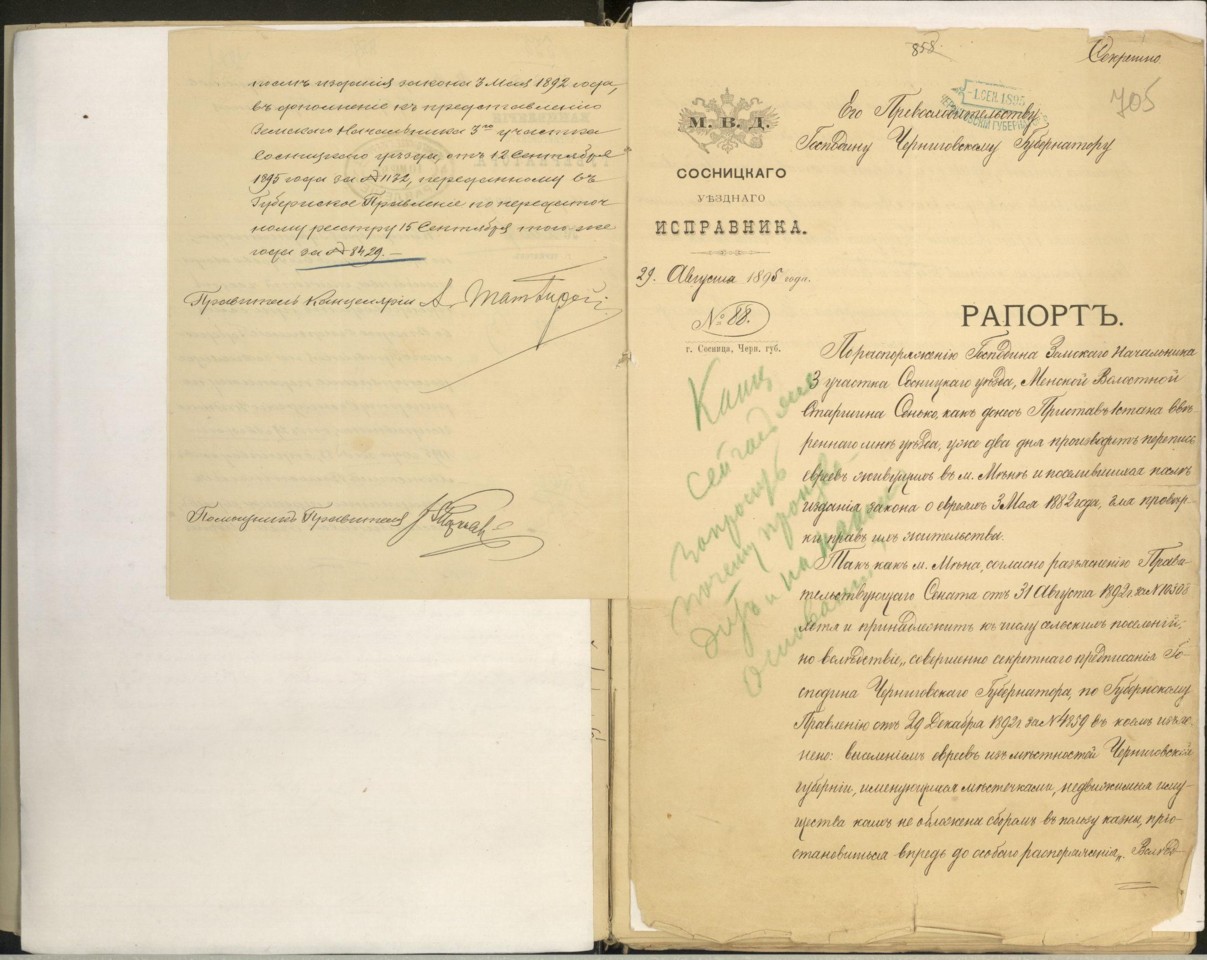 издания закона 3 Мая 1892 года,
въ дополнение къ представлению
Земскаго Начальника 3го участка
Сосницкаго уѣзда, отъ 12 Сентября
1895 года за № 1172, переданному въ
Губернское Правление по передаточ
ному реестру 15 Сентября того же
года за № 8429.—
Правитель Канцеляріи А.
Помощникъ Правителя
858.
Секретно.
705
-1.СЕН.1895
М. В. Д.
СОСНИЦКАГО
УѢЗДНАГО
ИСПРАВНИКА.
29. Августа 1895 года.
№ 88.
г. Сосница, Черн. губ.
Его Превосходительству
Господину Черниговскому Губернатору
РАПОРТЪ.
По распоряженію Господина Земскаго Начальника
3 участка Сосницкаго уѣзда, Менской Волостной
Старшина Сенько, какъ донесъ Приставъ 1 стана ввѣ
реннаго мнѣ уѣзда, уже два дня производитъ перепись
евреевъ живущихъ въ м. Мѣнѣ и поселившихся послѣ
изданія закона о евреяхъ 3 Мая 1882 года, для провѣр
ки правъ ихъ жительства.
Такъ какъ м. Мѣна, согласно разъясненію Прави
тельствующаго Сената отъ 31 Августа 1892 г за №
хотя и принадлежитъ къ числу сельскихъ поселеній,
но вслѣдствіе „совершенно секретнаго предписанія Го-
сподина Черниговскаго Губернатора, по Губернскому
Правленію отъ 29 Декабря 1892 г за № 4259 въ коемъ изъяс
нено: выселеніемъ евреевъ изъ мѣстностей Черниговской
губерніи, именующихся мѣстечками, недвижимыя иму-
щества коихъ не обложены сборомъ въ пользу казны, прі-
остановиться впредь до особаго распоряженія„. Вслѣд-
Канц
сейчасъ же
запросить
почему произво
дитъ и на какомъ
основаніи